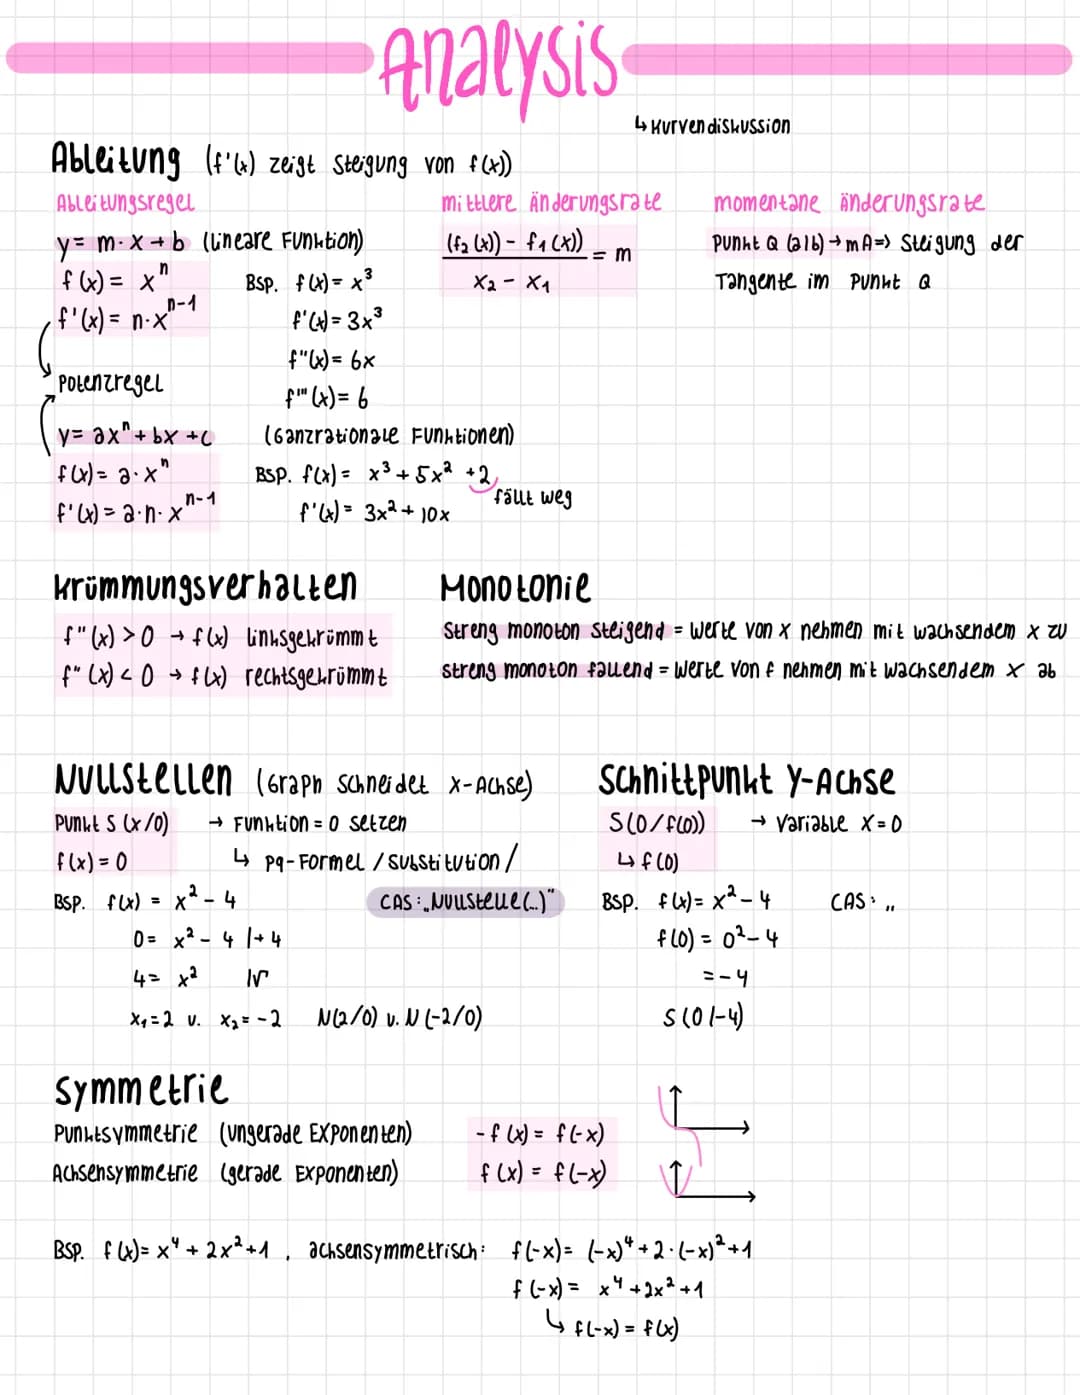 Analysis
↳ Kurvendiskussion
Ableitung (f'(x) zeigt Steigung von f(x))
Ableitungsregel
y = m·x + b (lineare Funktion)
f(x) = xⁿ
f'(x) = n·xⁿ⁻¹
Bsp. f(x) = x³
f'(x) = 3x³
f"(x) = 6x
f'''(x) = 6
Potenzregel
y = ax^n + bx + c (Ganzrationale Funktionen)
f(x) = a·xⁿ
f'(x) = a·n·xⁿ⁻¹
Bsp. f(x) = x³ + 5x² + 2
fällt weg
f'(x) = 3x² + 10x
mittlere Änderungsrate
(f₂(x)) - f₁(x)) = m
x₂ - x₁
momentane Änderungsrate
Punkt Q (a|b) → mA => Steigung der
Tangente im Punkt Q
Krümmungsverhalten
f"(x) > 0 → f(x) linksgekrümmt
f"(x) < 0 → f(x) rechtsgekrümmt
Monotonie
Streng monoton steigend = Werte von x nehmen mit wachsendem x zu
streng monoton fallend = Werte von f nehmen mit wachsendem x ab
Nullstellen (Graph schneidet x-Achse)
Punkt S (x/0) → Funktion = 0 setzen
f(x) = 0 ↳ pq-Formel / Substitution /
CAS: „Nullstelle(..)"
Bsp. f(x) = x² - 4
0 = x² - 4 |+ 4
4 = x² |√
x₁ = 2 v. x₂ = -2 N(2/0) v. N(-2/0)
Schnittpunkt Y-Achse
S(0/f(0)) → Variable x = 0
↳ f(0)
Bsp. f(x) = x² - 4 CAS: „
f(0) = 0² - 4
= -4
S(0/-4)
Symmetrie
Punktsymmetrie (ungerade Exponenten) -f(x) = f(-x)
Achsensymmetrie (gerade Exponenten) f(x) = f(-x)
Bsp. f(x) = x⁴ + 2x² + 1, achsensymmetrisch: f(-x) = (-x)⁴ + 2·(-x)² + 1
f(-x) = x⁴ + 2x² + 1
↳ f(-x) = f(x)